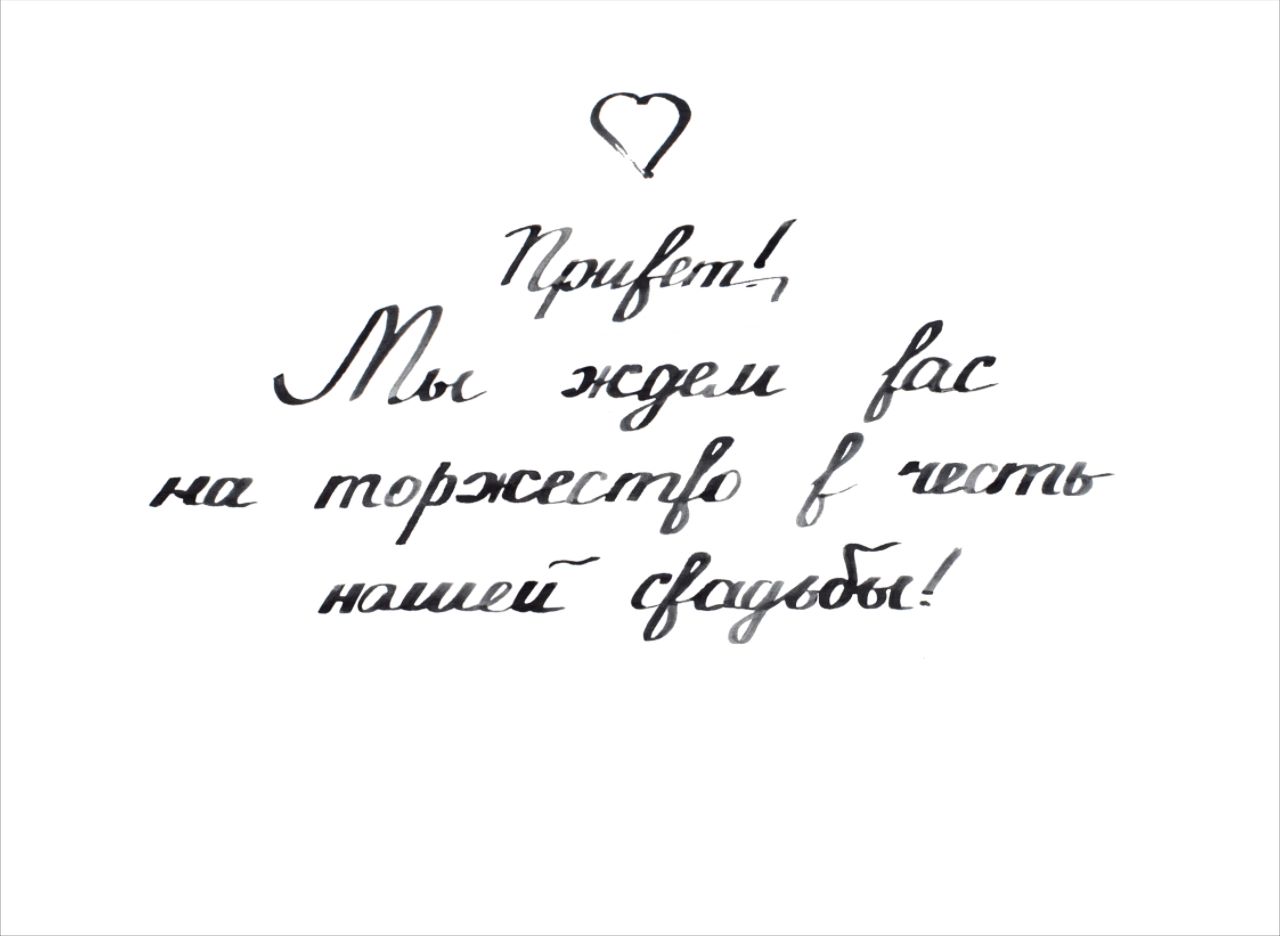 Привет!
Мы ждем вас
на торжество в честь
нашей свадьбы!